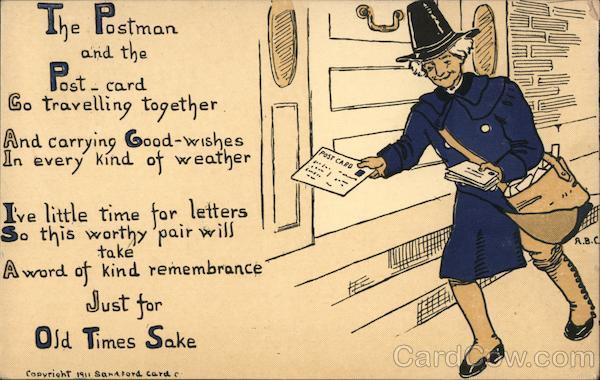 The Postman
and the
Post-card
Go travelling together
And carrying Good-wishes
In every kind of weather
I've little time for letters
So this worthy pair will
take
A word of kind remembrance
Just for
Old Times Sake
Copyright 1911 Sandford Card C
POST CARD
A.B.C.
CardCow.com